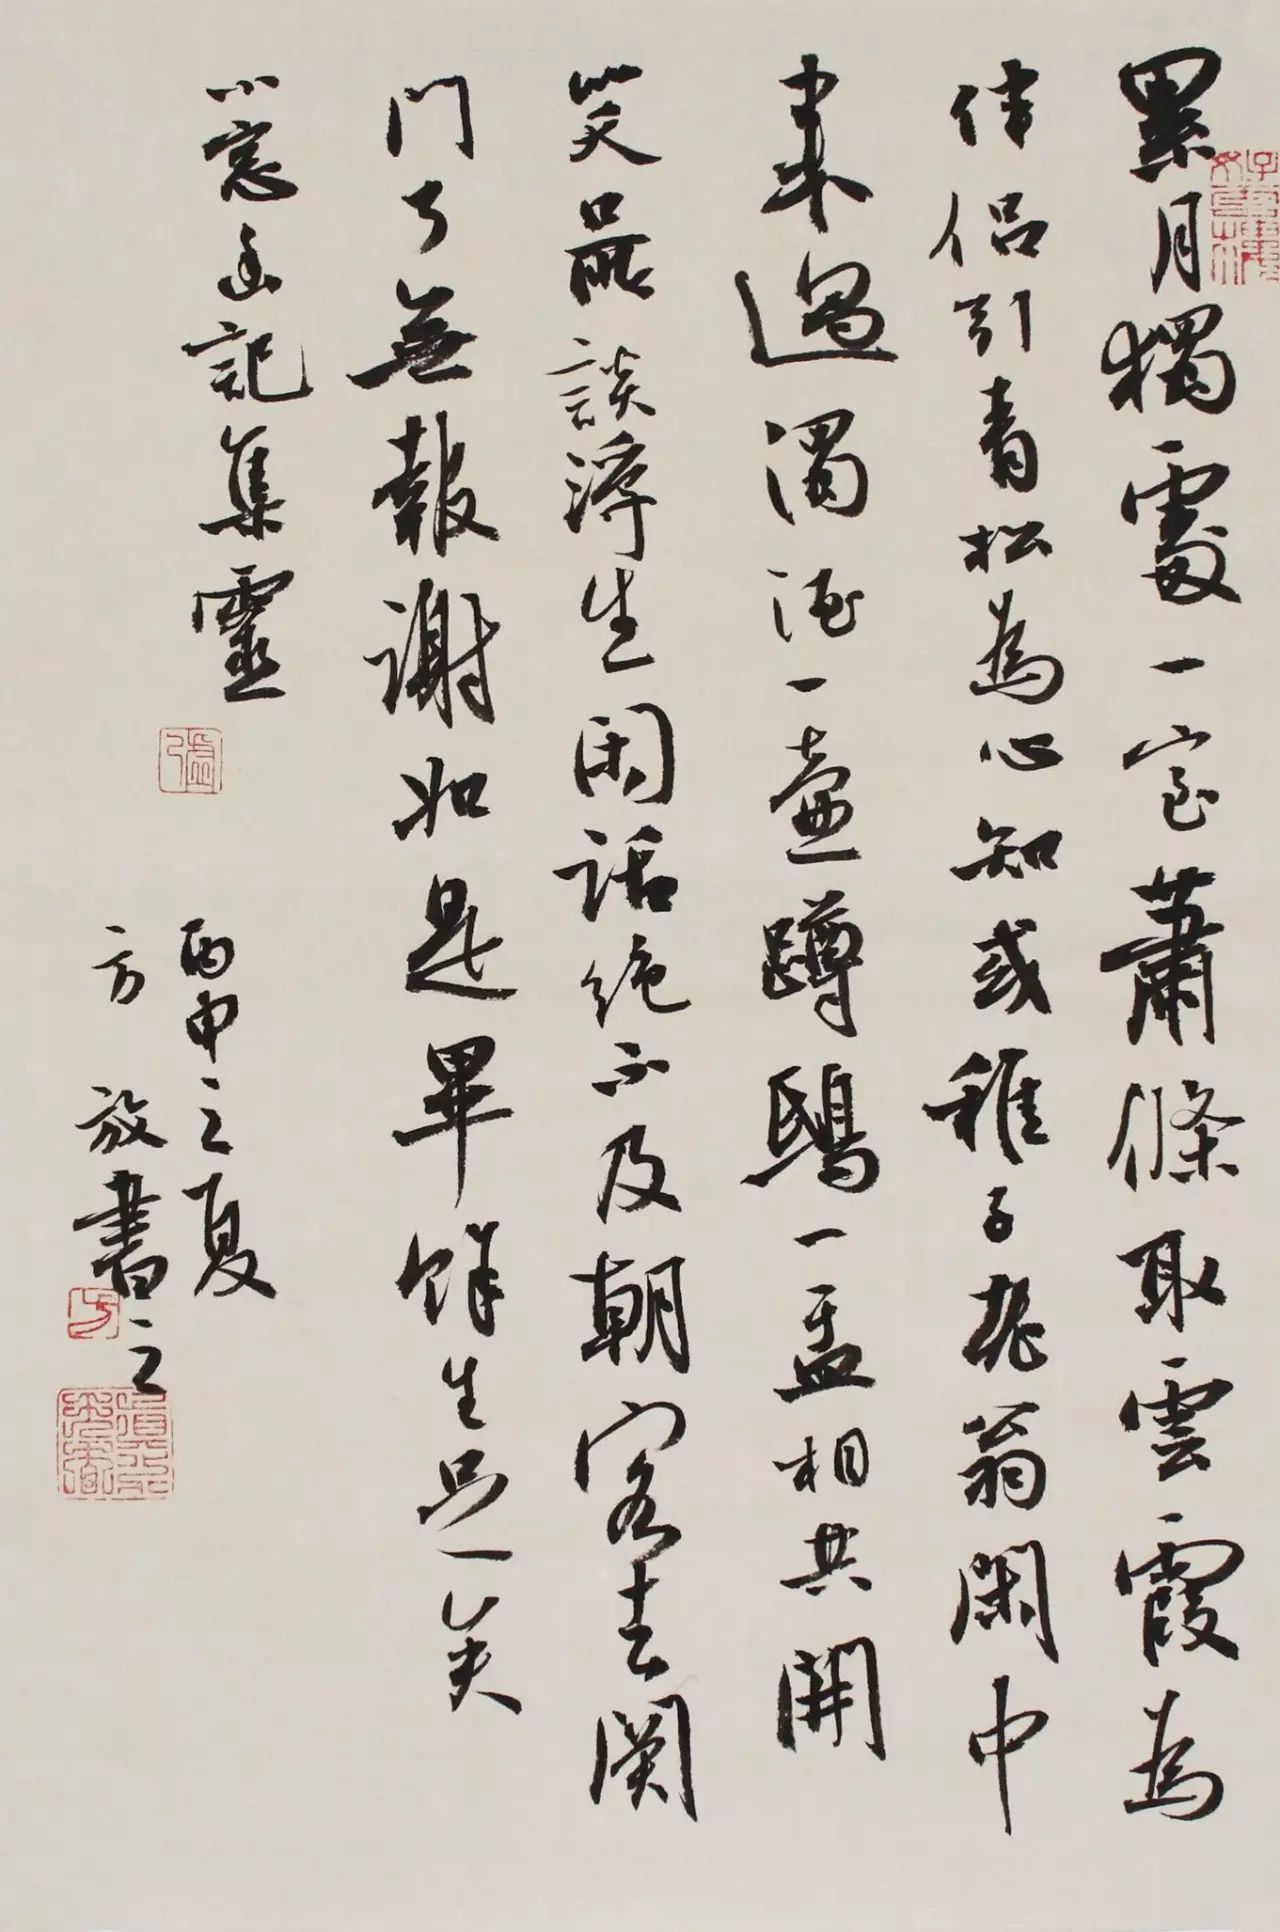 累月獨處一室蕭條取雲霞為
伴侶引青松為心知或稚子老翁閑中
來過濁酒一壺蹲鴟一盂相共開
笑品談浮生閑話絕不及朝客去関
門了無報謝如是畢餘生足矣
小窓幽記集靈
丙申之夏
方放書之